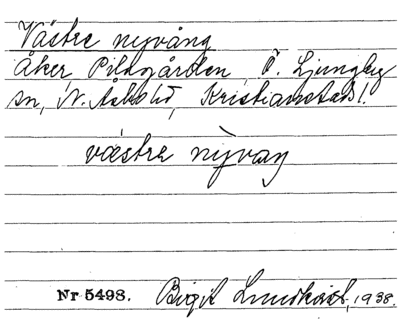 Västre nyvång
Åker Pilagården, Ö. Ljungby
sn, N. Åsbo hd, Kristianstads l.
västre nyvaŋ
Nr 5498. Birgit Lundkvist, 1938.